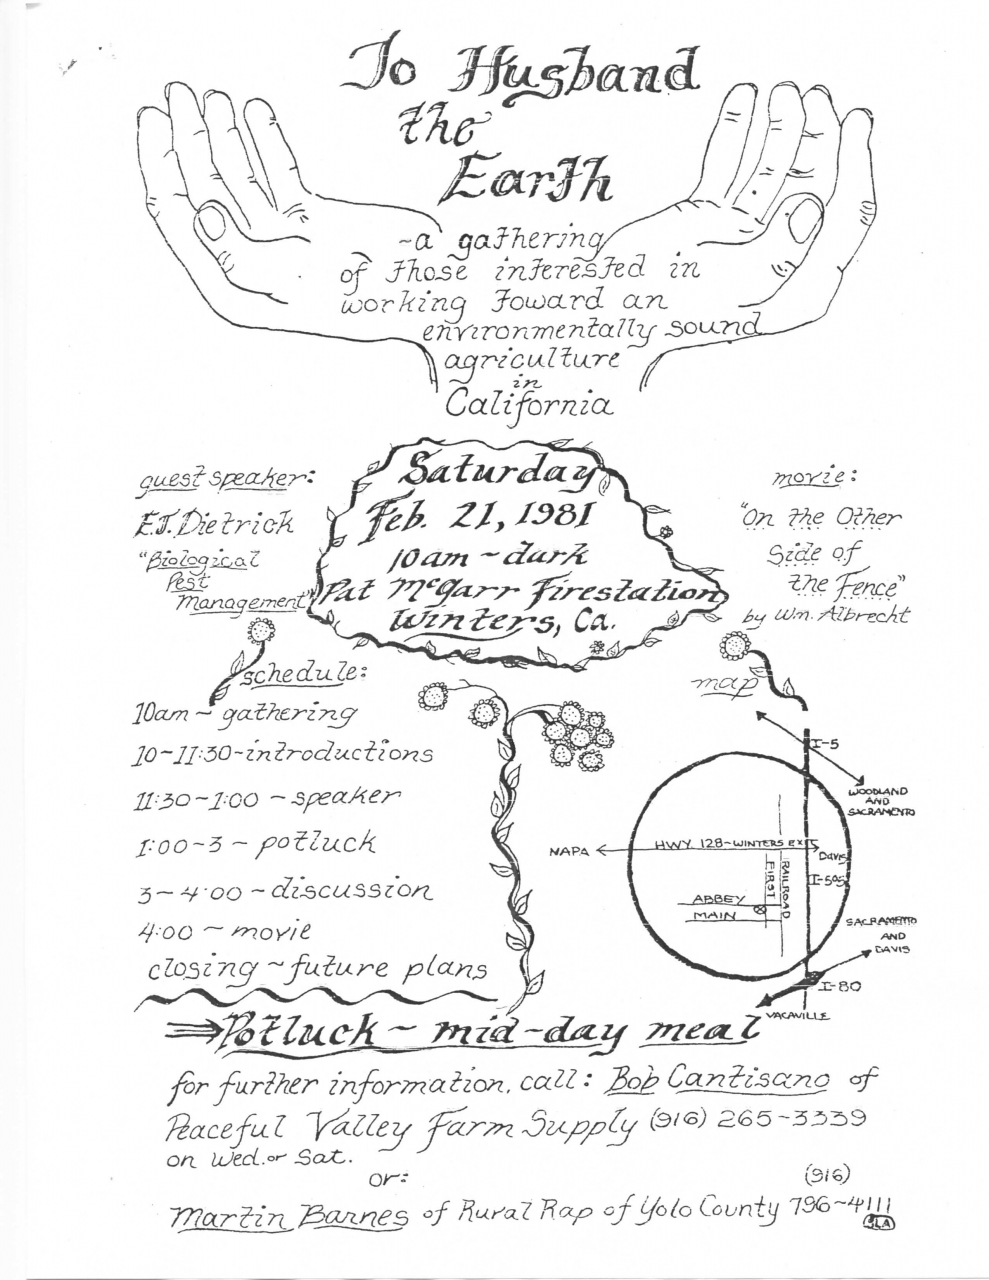 To Husband
the
Earth
~a gathering
of those interested in
working toward an
environmentally sound
agriculture
in
California
guest speaker:
E.J. Dietrick
"Biological
Pest
Management"
Saturday
Feb. 21, 1981
10am ~ dark
Pat McGarr Firestation
Winters, Ca.
movie:
"On the Other
Side of
the Fence"
by Wm. Albrecht
schedule:
10am ~ gathering
10-11:30-introductions
11:30-1:00 - speaker
1:00-3 - potluck
3-4:00 ~ discussion
4:00 ~ movie
closing ~ future plans
map
I-5
WOODLAND
AND
SACRAMENTO
NAPA
HWY 128~WINTERS EXIT
DAVIS
I-505
FIRST
RAILROAD
ABBEY
MAIN
SACRAMENTO
AND
DAVIS
I-80
VACAVILLE
⇒Potluck ~ mid-day meal
for further information, call: Bob Cantisano of
Peaceful Valley Farm Supply (916) 265-3339
on Wed. or Sat.
or:
(916)
Martin Barnes of Rural Rap of Yolo County 796-4111